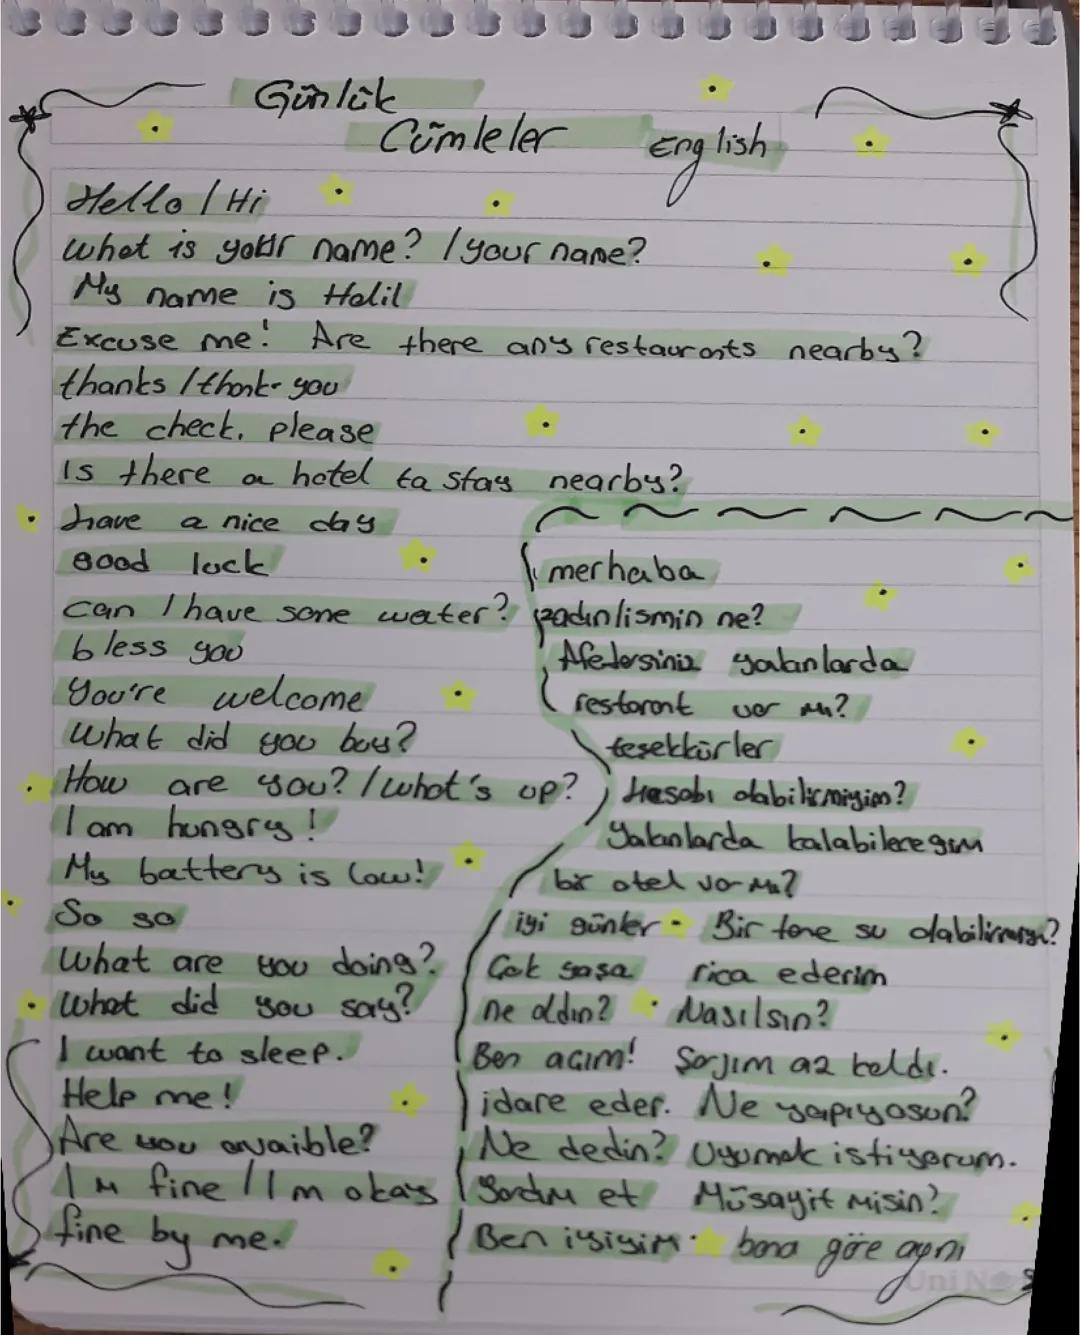 Günlük
Cümleler English
Hello / Hi
What is your name? / your name?
My name is Halil
Excuse me! Are there any restaurants nearby?
thanks / thank you
the check, please
Is there a hotel ta stay nearby?
have a nice day
good luck
can I have some water?
bless you
You're welcome
What did you buy?
How are you? / what's up?
I am hungry!
My battery is low!
So so
What are you doing?
What did you say?
I want to sleep.
Help me!
Are you avaible?
I'm fine / I'm okay
fine by me.
merhaba
adın/ismin ne?
Afedersiniz yakınlarda
restorant var mı?
teşekkürler
Hesabı alabilirmiyim?
Yakınlarda kalabileceğim
bir otel var mı?
iyi günler Bir tane su alabilirmiyim?
Çok şaşa rica ederim
ne aldın? Nasılsın?
Ben açım! Şarjım az kaldı.
idare eder. Ne yapıyosun?
Ne dedin? Uyumak istiyorum.
Yardım et Müsayit misin?
Ben iyiyim. bana göre aynı